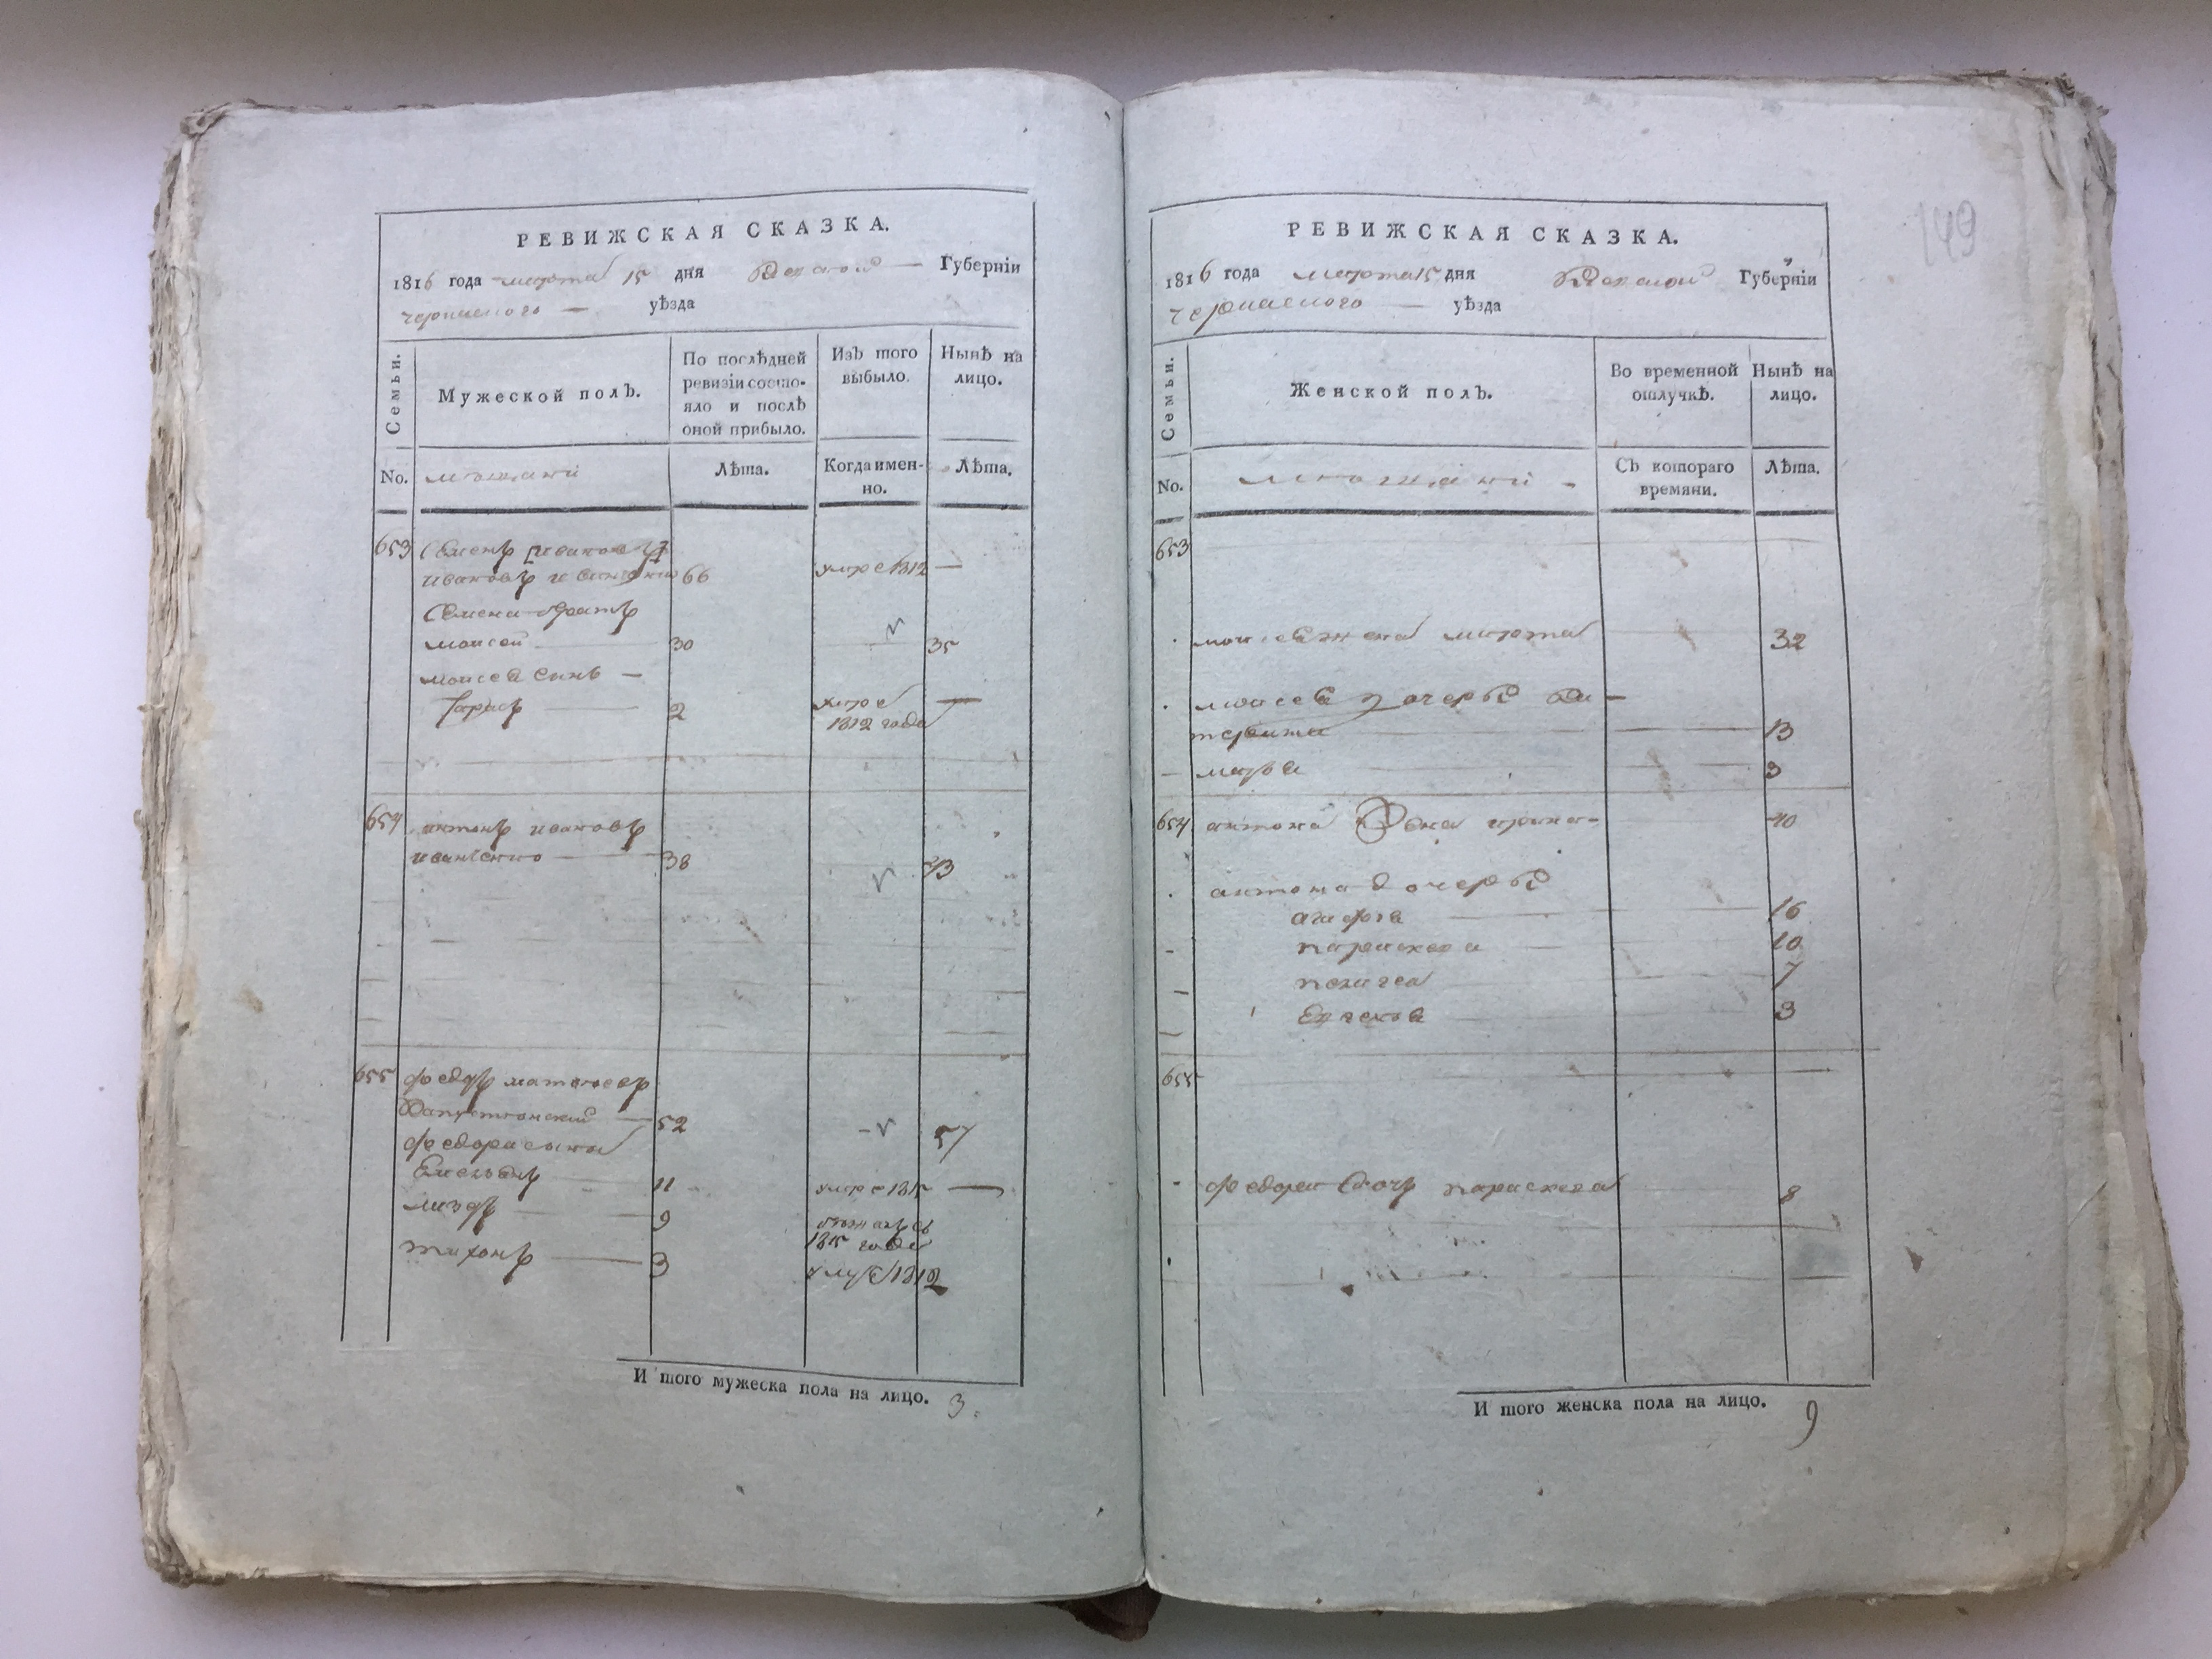 РЕВИЖСКАЯ СКАЗКА.
1816 года марта 15 дня Киевской Губерніи
черкаского уѣзда
Семьи.
Мужеской полъ.
По послѣдней
ревизіи состо-
яло и послѣ
оной прибыло.
Изъ того
выбыло.
Нынѣ на
лицо.
No. мѣщани
Лѣта.
Когда имен-
но.
Лѣта.
653 Семенъ Ивановъ
ивановъ 66 умре 1812 —
Семена братъ
моисей 30 35
моисея синъ —
Тарасъ 2 умре —
1812 года
654 антонъ ивановъ
иваненко 38 43
655 федоръ матвеевъ
52 57
федора сыны
Емельянъ 11 умре 1815 —
9
1815 года
тихонъ 3 умре 1812
И того мужеска пола на лицо. 3
149
РЕВИЖСКАЯ СКАЗКА.
1816 года марта 15 дня Киевской Губерніи
черкаского уѣзда
Семьи.
Женской полъ.
Во временной
отлучкѣ.
Нынѣ на
лицо.
No. мѣщани
Съ котораго
времяни.
Лѣта.
653
моисея жена марфа 32
моисея дочеры
13
3
654 антона жена ирина 40
антона дочеры
агафія 16
параскева 10
7
3
655
федора дочъ параскева 8
И того женска пола на лицо. 9